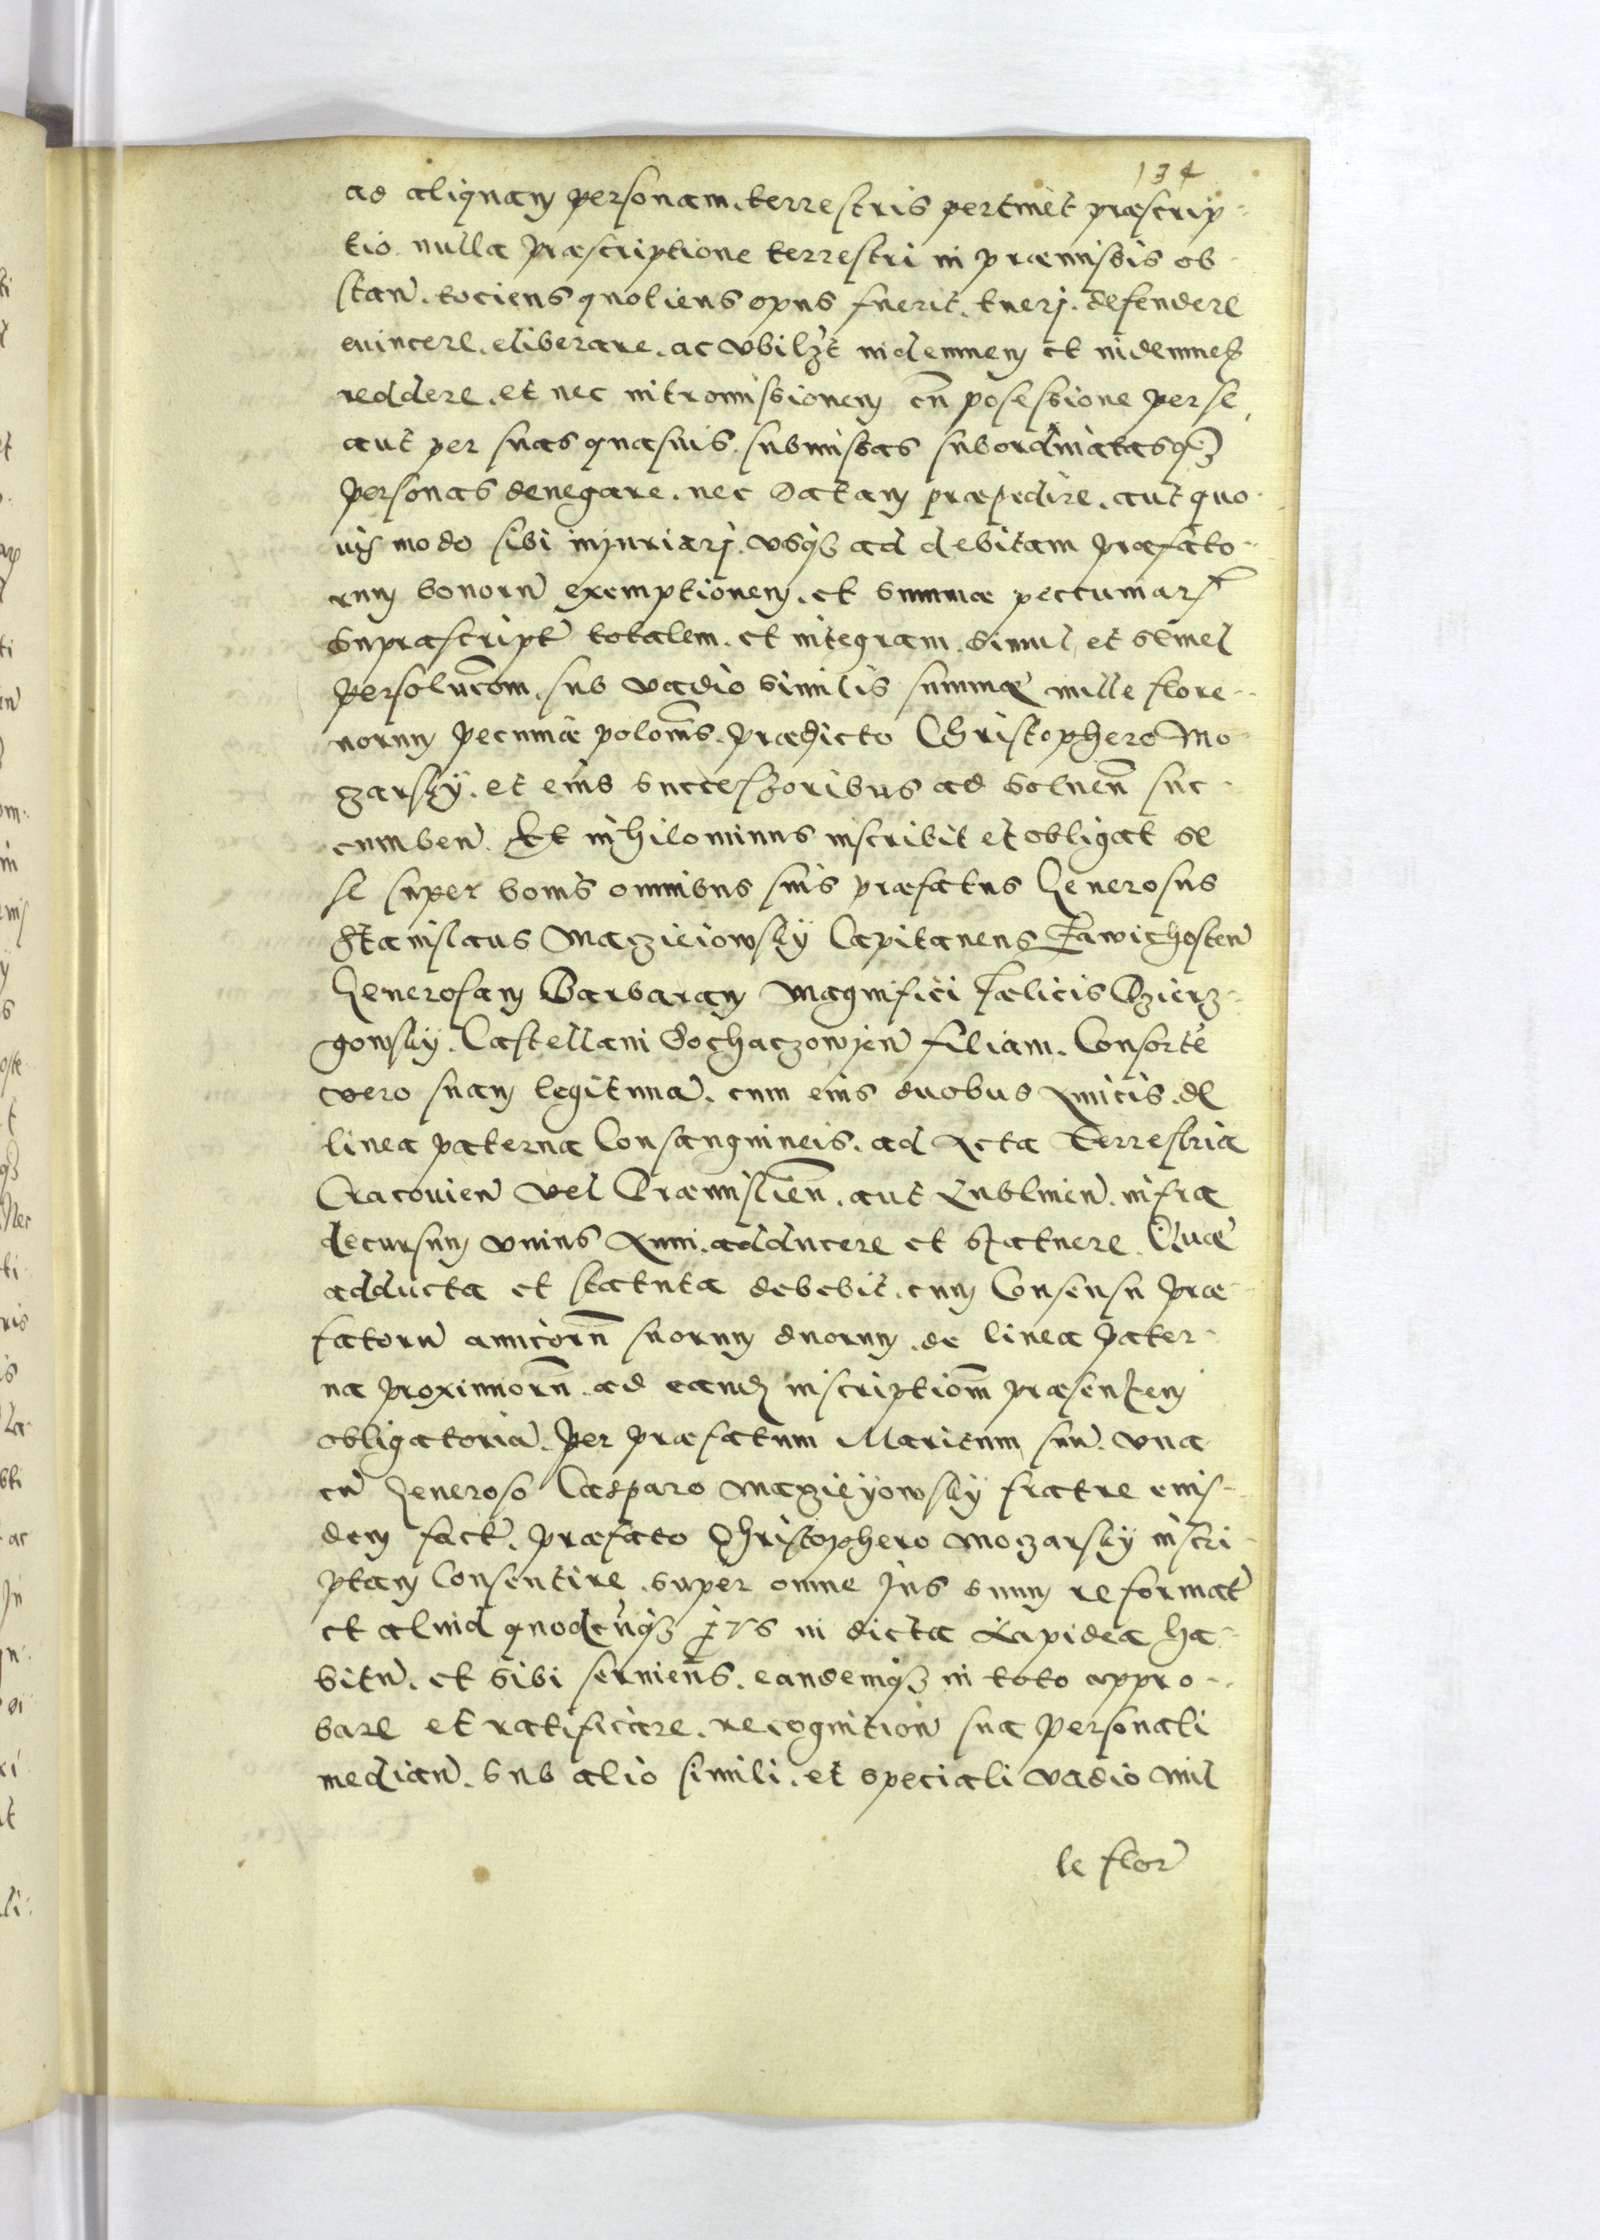 134
ad aliquam personam terrestris pertinet præscrip-
tio nulla præscriptione terrestri in præmissis ob-
stan̄. tociens quotiens opus fuerit. tuerj. defendere
euincere. eliberare. ac vbilꝫt indemnem et indemnes
reddere. et nec intromissionem cū posessione per se
aut per suas quasuis. submissas subordinatasq̃ꝫ
personas denegare. nec datam præpedire. aut quo-
uis modo sibi injuriarj. vsqꝫ ad debitam præfato-
rum bonorū exemptionem. et summæ pecuniar̄
supræscript̄ totalem et integram simul et semel
persolucōm. sub vadio similis summæ mille flore-
norum pecuniæ polonīs. prædicto Christophero Mo-
zarsky. et eius successoribus ad soluen̄ suc-
cumben̄. Et nihilominus inscribit et obligat se
se super bonis omnibus suis præfatus Generosus
Stanislaus Maczieiowsky Capitaneus Zawichosten̄
Generosam Barbaram Magnifici Fælicis Dzierz-
gowsky. Castellani Sochaczowien̄ filiam. Consortē
vero suam legitimā. cum eius duobus Amicis. de
linea paterna Consanguineis. ad Acta Terrestria
Cracouien̄ vel Præmislien̄. aut Lublinen̄. infra
decursum vnius Anni. adducere et statuere. Quæ
adducta et statuta debebit. cum Consensu præ-
fatorū amicorū suorum duorum de linea pater-
na proximorū ad eandē inscriptiōm præsentem
obligatoriā. per præfatum Maritum suū. vna
cū Generoso Casparo Maczieyowsky fratre eius-
dem fact̄. præfato Christophero Mozarsky inscri-
ptam Consentire. super omne jus suum reformat̄
et aliud quodcūqꝫ jus in dicta Lapidea ha-
bitū. et sibi seruiens. eandemqꝫ in toto appro-
bare et ratificare. recognition̄ sua personali
median̄. sub alio simili. et speciali vadio mil
le flor̄